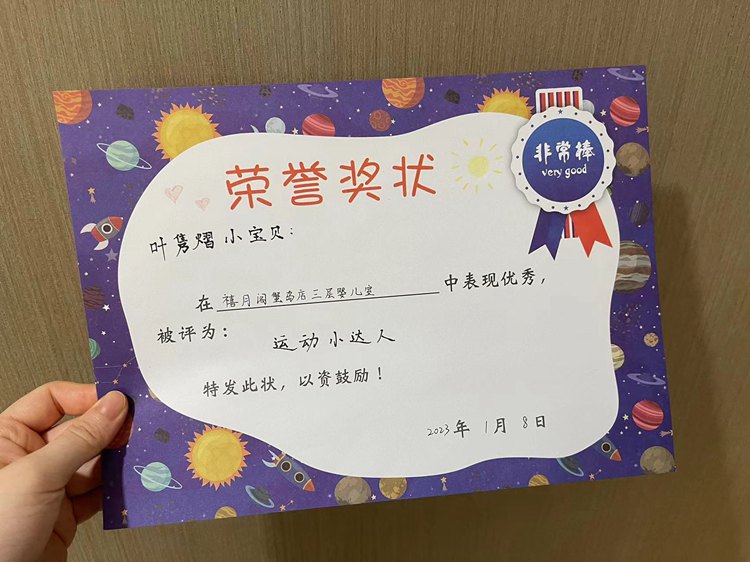 荣誉奖状
非常棒
very good
叶隽熠小宝贝：
在禧月阁蟹岛店三层婴儿室中表现优秀，
被评为： 运动小达人
特发此状，以资鼓励！
2023年 1月 8日